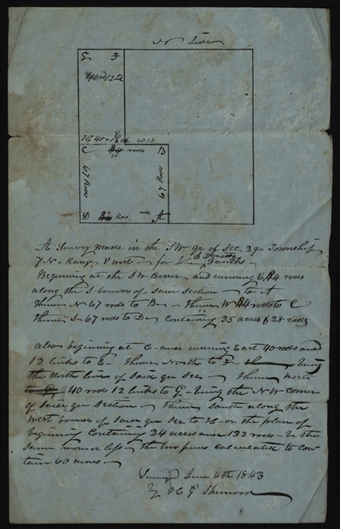 N Line
G F
40 rods 12 L
H 40 rods 12
C 84 rods B
67 Rods
67 Rods
D Rods A
A Survey made in the S W qr of Sec. 39 Township
7 N Range
Beginning at the S W Corner and running E 84 rods
along the S bounds of said Section to A
Thence N 67 rods to B Thence W 84 rods to C
Thence S 67 rods to D Containing 35 acres & 28 rods
also beginning at C and running East 40 rods and
12 links to E Thence North to F being
the North line of said qr Sec Thence West
40 rods 12 links to G being the N W corner
of said qr Section Thence South along the
West bounds of said qr Sec to H or the place of
beginning Containing 24 acres and 132 rods be the
same more or less the two pieces calculated to con-
tain 60 acres
Surveyed June 6th 1843
By